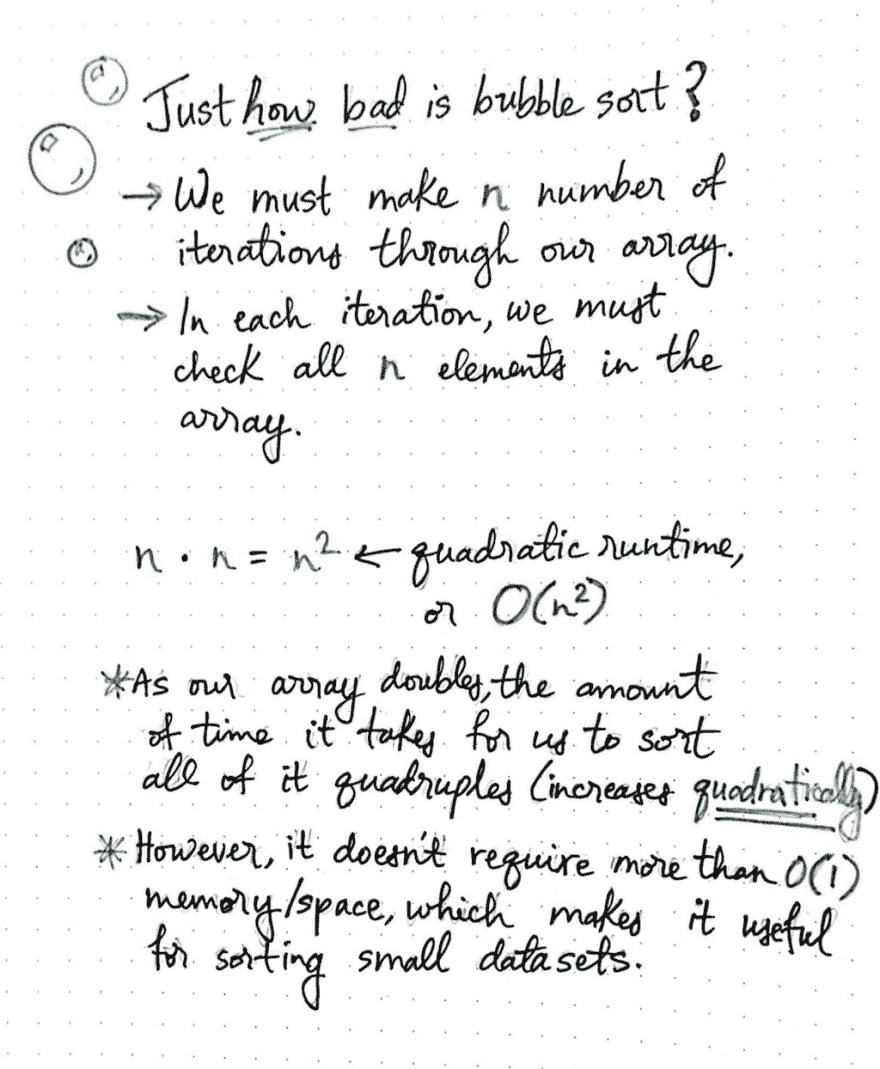 Just how bad is bubble sort?
→ We must make n number of
iterations through our array.
→ In each iteration, we must
check all n elements in the
array.
n · n = n² ← quadratic runtime,
or O(n²)
*As our array doubles, the amount
of time it takes for us to sort
all of it quadruples (increases quadratically)
* However, it doesn't require more than O(1)
memory/space, which makes it useful
for sorting small datasets.